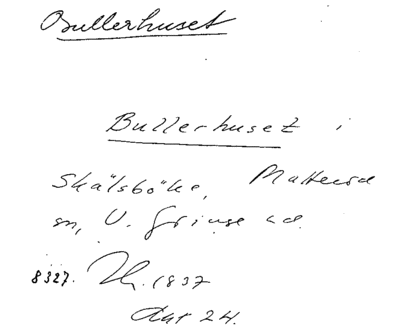 Bullerhuset
Bullerhuset i
Skälsböke, Matteröd
sn, V. Göinge hd.
8327. Th. 1837
Akt 24.